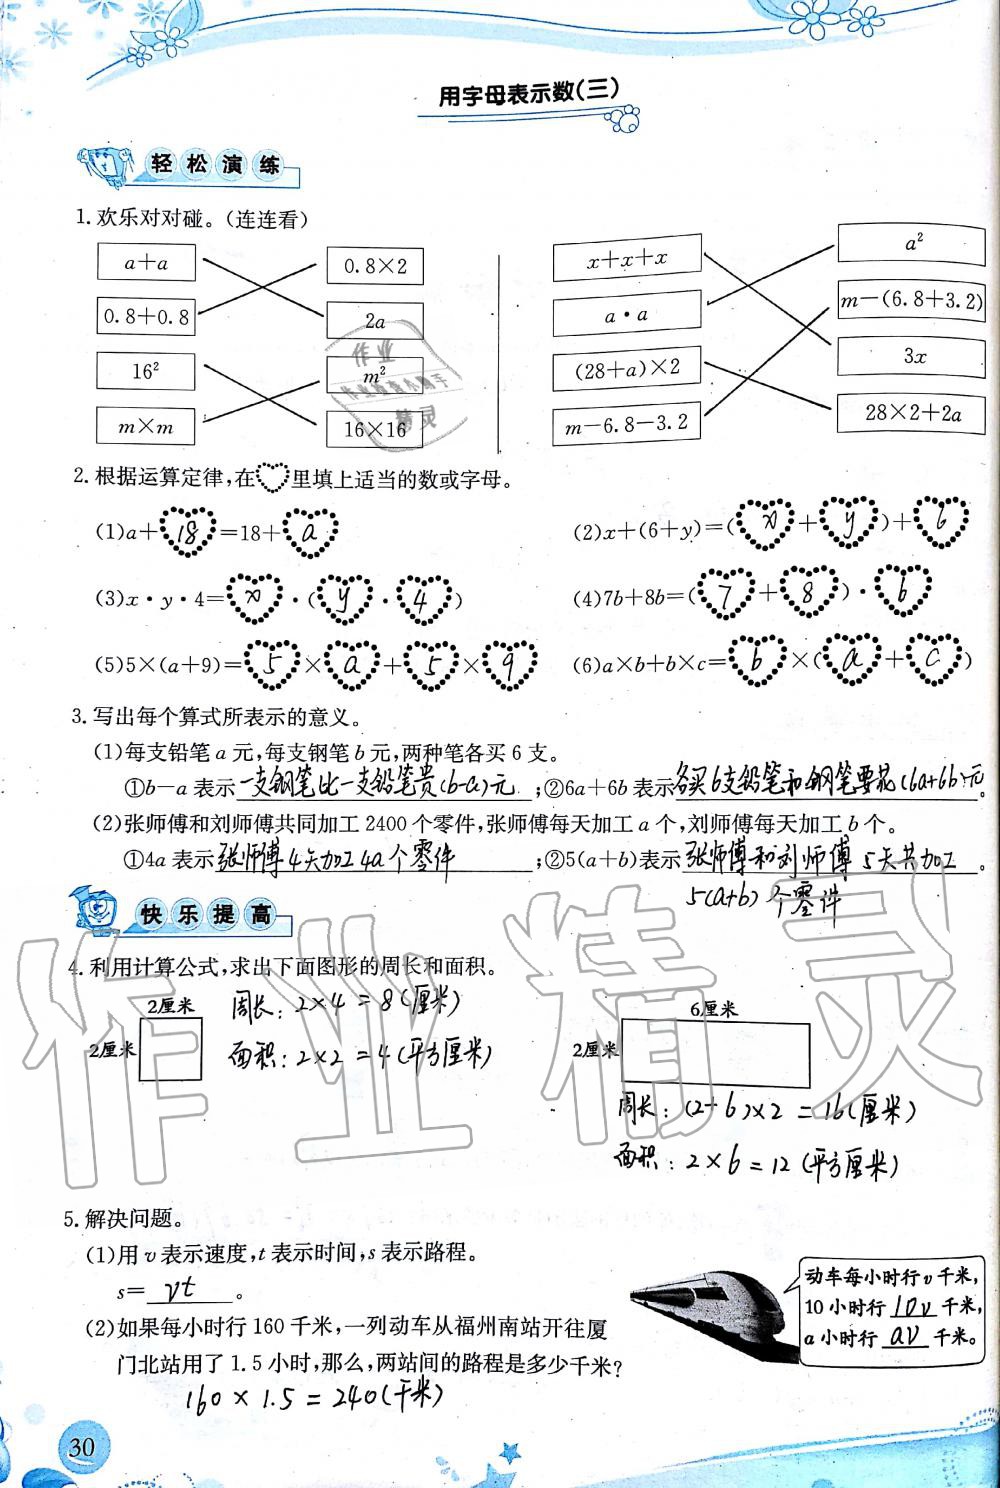 用字母表示数(三)
轻松演练
1.欢乐对对碰。(连连看)
a+a
0.8×2
x+x+x
a²
0.8+0.8
2a
a·a
m-(6.8+3.2)
16²
m²
(28+a)×2
3x
m×m
16×16
m-6.8-3.2
28×2+2a
作业
作业检查小助手
精灵
2.根据运算定律,在里填上适当的数或字母。
(1)a+18=18+a
(2)x+(6+y)=(x+y)+6
(3)x·y·4=x·(y·4)
(4)7b+8b=(7+8)·b
(5)5×(a+9)=5×a+5×9
(6)a×b+b×c=b×(a+c)
3.写出每个算式所表示的意义。
(1)每支铅笔a元,每支钢笔b元,两种笔各买6支。
①b-a表示一支钢笔比一支铅笔贵(b-a)元;②6a+6b表示各买6支铅笔和钢笔要花(6a+6b)元。
(2)张师傅和刘师傅共同加工2400个零件,张师傅每天加工a个,刘师傅每天加工b个。
①4a表示张师傅4天加工4a个零件;②5(a+b)表示张师傅和刘师傅5天共加工。
5(a+b)个零件
快乐提高
4.利用计算公式,求出下面图形的周长和面积。
2厘米
2厘米
周长:2×4=8(厘米)
面积:2×2=4(平方厘米)
6厘米
2厘米
周长:(2+6)×2=16(厘米)
面积:2×6=12(平方厘米)
作业精灵
5.解决问题。
(1)用v表示速度,t表示时间,s表示路程。
s=vt。
(2)如果每小时行160千米,一列动车从福州南站开往厦
门北站用了1.5小时,那么,两站间的路程是多少千米?
160×1.5=240(千米)
动车每小时行v千米,
10小时行10v千米,
a小时行av千米。
30